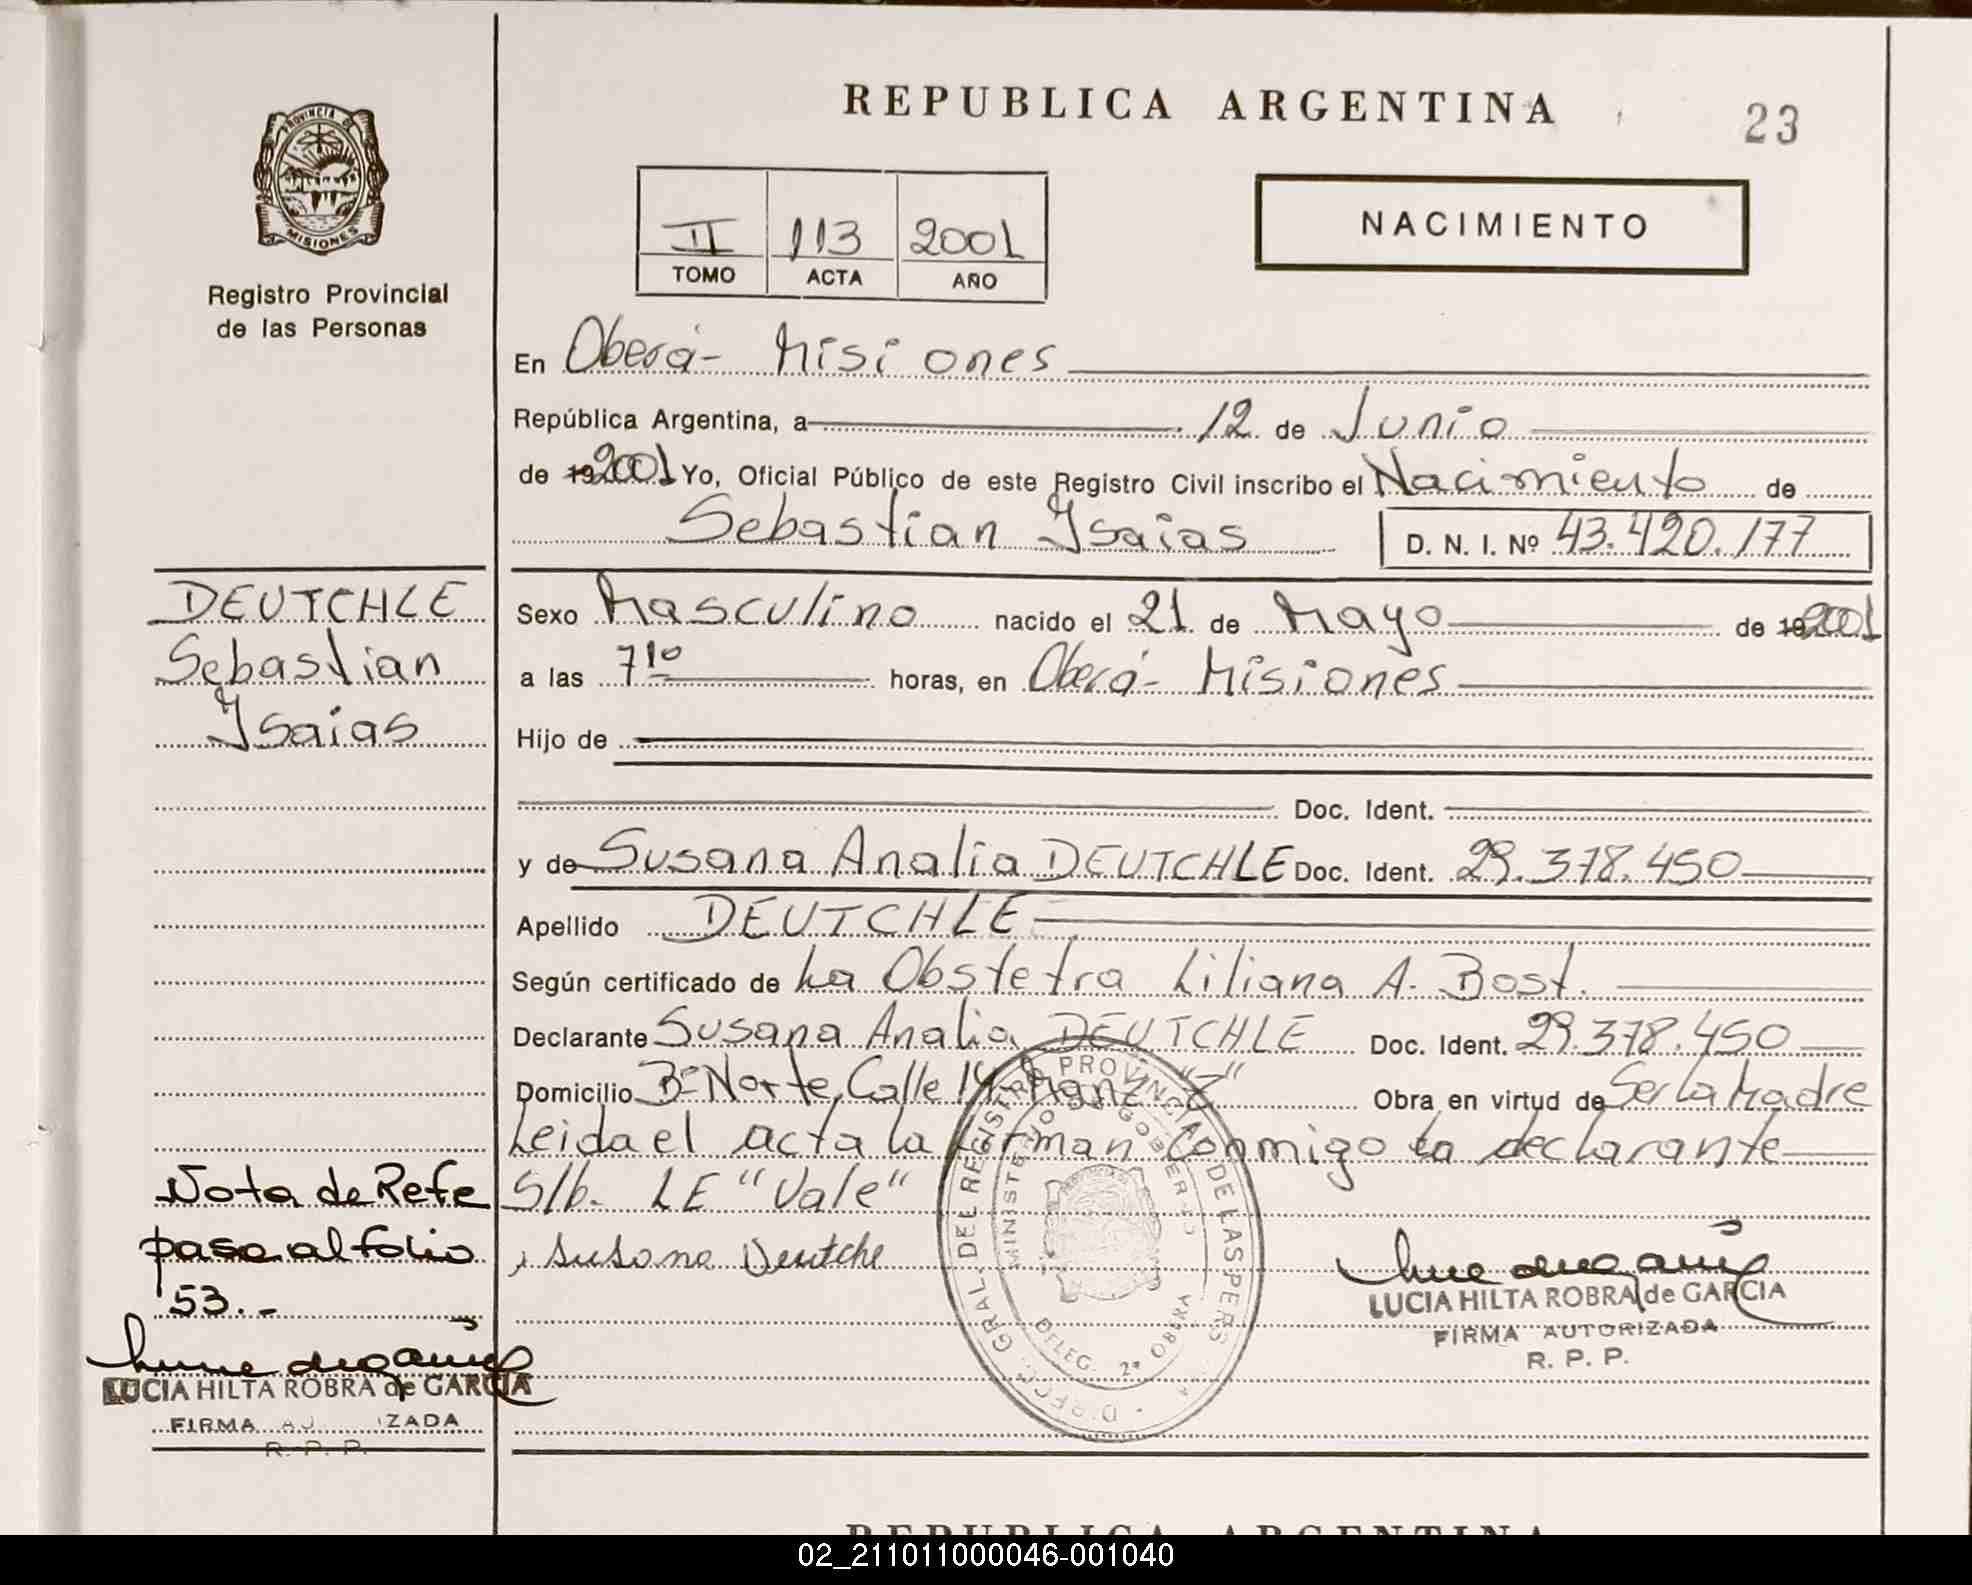 REPUBLICA ARGENTINA
23
PROVINCIA DE
MISIONES
Registro Provincial
de las Personas
II 113 2001
TOMO ACTA AÑO
NACIMIENTO
En Oberá - Misiones
República Argentina, a 12 de Junio
de 19 2001 Yo, Oficial Público de este Registro Civil inscribo el Nacimiento de
Sebastian Isaias D. N. I. Nº 43.420.177
DEUTCHLE
Sebastian
Isaias
Sexo Masculino nacido el 21 de Mayo de 19 2001
a las 7 10 horas, en Oberá - Misiones
Hijo de
Doc. Ident.
y de Susana Analia DEUTCHLE Doc. Ident. 29.378.450
Apellido DEUTCHLE
Según certificado de La Obstetra Liliana A. Bost.
Declarante Susana Analia DEUTCHLE Doc. Ident. 29.378.450
Domicilio Bº Norte, Calle 14 - Manz "Z" Obra en virtud de Ser la Madre
Leida el acta la firman conmigo la declarante
S/b. LE "Vale"
Susana Deutche
Nota de Refe
pasa al folio
53.-
LUCIA HILTA ROBRA de GARCIA
FIRMA AUTORIZADA
R. P. P.
LUCIA HILTA ROBRA de GARCIA
FIRMA AU IZADA
R. P. P.
DIRECC. GRAL. DEL REGISTRO PROVINCIAL DE LAS PERS.
MINISTERIO DE GOBIERNO
DELEG. 2ª OBERA
REPUBLICA ARGENTINA
02_211011000046-001040